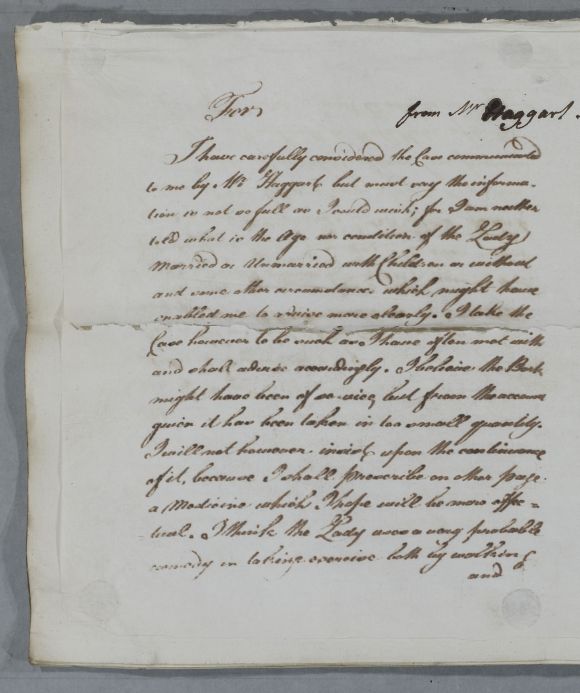 For
from Mr Haggart.
I have carefully considered the Case communicated
to me by Mr. Haggart, but must say the informa-
tion is not so full as I could wish; for I am neither
told what is the Age or condition of the Lady
Married or Unmarried with Children or without
and some other circumstances which might have
enabled me to advise more clearly. I take the
Case however to be such as I have often met with
and shall advise accordingly. I believe the Bark
might have been of service, but from the account
given it has been taken in too small quantity.
I will not however insist upon the continuance
of it, because I shall prescribe on other page
a Medicine which I hope will be more effec-
-tual. I think the Lady uses a very probable
remedy in taking exercise both by walking
and